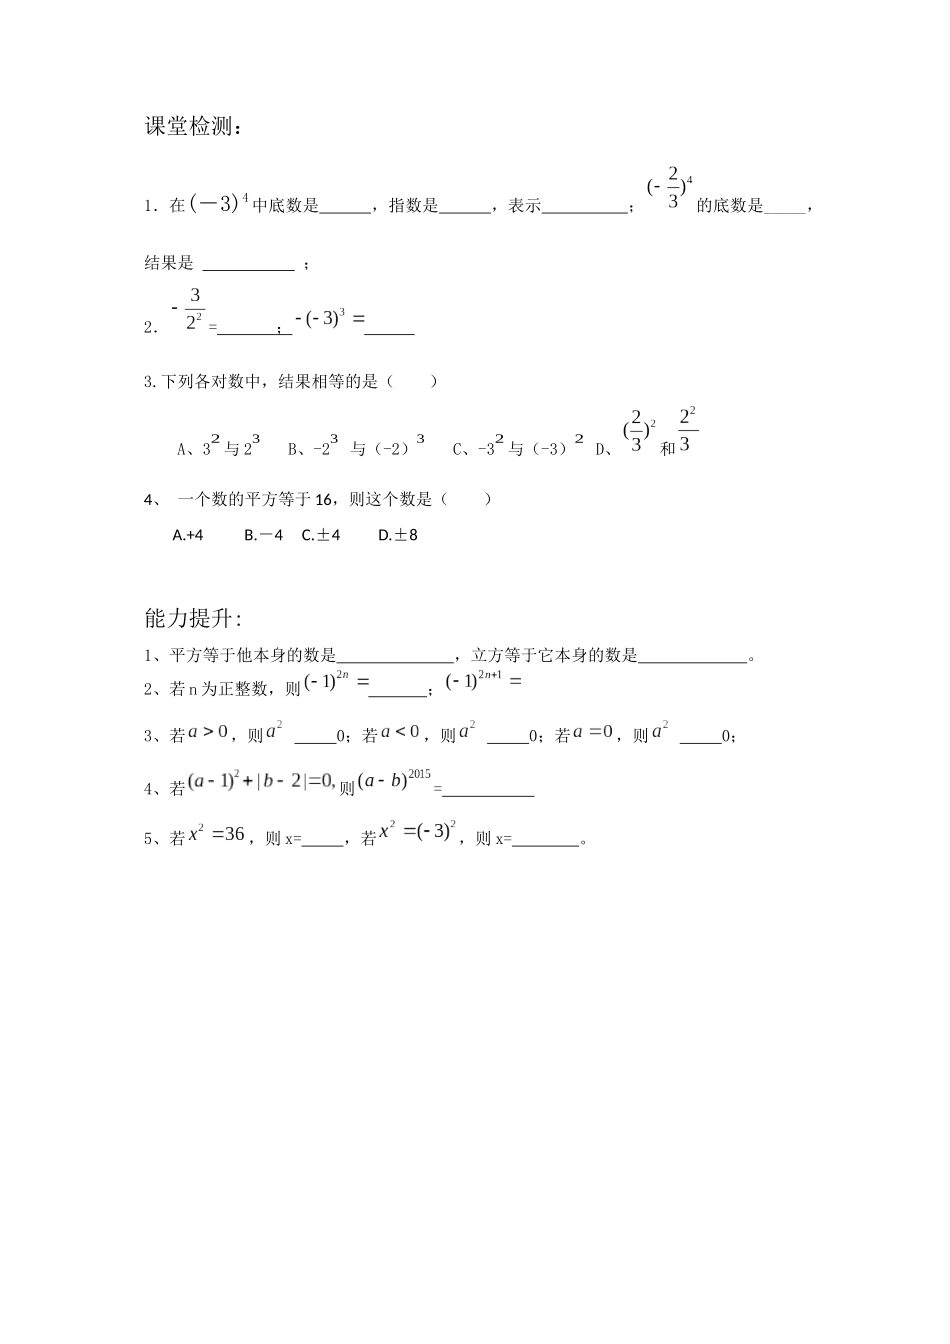 课堂检测：
1．在(－3)⁴中底数是______，指数是______，表示__________；(-2/3)⁴的底数是_____，
结果是 ___________ ；
2． -3/2²=_______；-(-3)³=______
3.下列各对数中，结果相等的是（　　）
A、3²与 2³ B、-2³ 与（-2）³ C、-3²与（-3）² D、(2/3)²和2²/3
4、 一个数的平方等于 16，则这个数是（　　）
A.+4 B.－4 C.±4 D.±8
能力提升:
1、平方等于他本身的数是______________，立方等于它本身的数是_____________。
2、若 n 为正整数，则(-1)²ⁿ=_______；(-1)²ⁿ⁺¹=
3、若a>0，则a² _____0；若a<0，则a² _____0；若a=0，则a² _____0；
4、若(a-1)²+|b-2|=0,则(a-b)²⁰¹⁵=___________
5、若x²=36，则 x=_____，若x²=(-3)²，则 x=________。